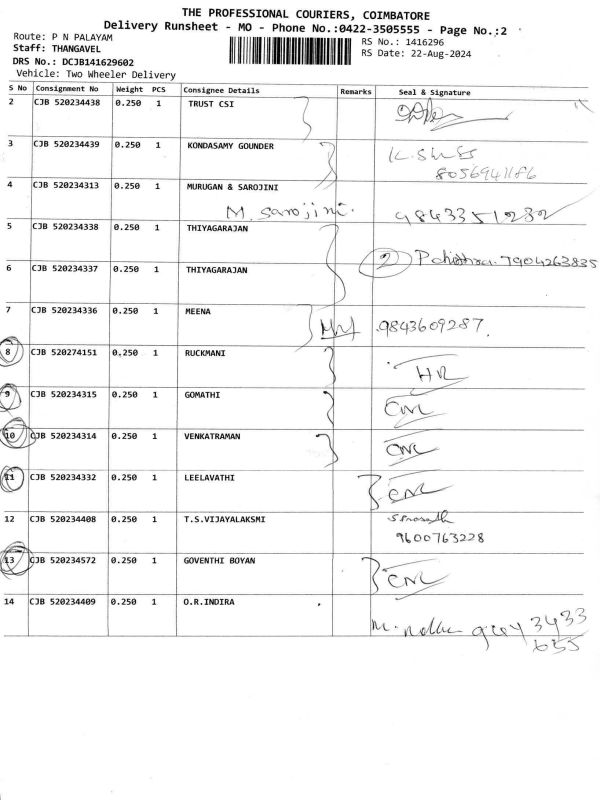 THE PROFESSIONAL COURIERS, COIMBATORE
Delivery Runsheet - MO - Phone No.:0422-3505555 - Page No.:2
Route: P N PALAYAM
RS No.: 1416296
Staff: THANGAVEL
RS Date: 22-Aug-2024
DRS No.: DCJB141629602
Vehicle: Two Wheeler Delivery
S No Consignment No Weight PCS Consignee Details Remarks Seal & Signature
2 CJB 520234438 0.250 1 TRUST CSI
3 CJB 520234439 0.250 1 KONDASAMY GOUNDER
8056941186
4 CJB 520234313 0.250 1 MURUGAN & SAROJINI
M. Sarojini. 9843351232
5 CJB 520234338 0.250 1 THIYAGARAJAN
2 P chithra. 7904263835
6 CJB 520234337 0.250 1 THIYAGARAJAN
7 CJB 520234336 0.250 1 MEENA
9843609287
8 CJB 520274151 0.250 1 RUCKMANI
HR
9 CJB 520234315 0.250 1 GOMATHI
CNL
10 CJB 520234314 0.250 1 VENKATRAMAN
CNL
11 CJB 520234332 0.250 1 LEELAVATHI
CNL
12 CJB 520234408 0.250 1 T.S.VIJAYALAKSMI
9600763228
13 CJB 520234572 0.250 1 GOVENTHI BOYAN
CNL
14 CJB 520234409 0.250 1 O.R.INDIRA
3433
655